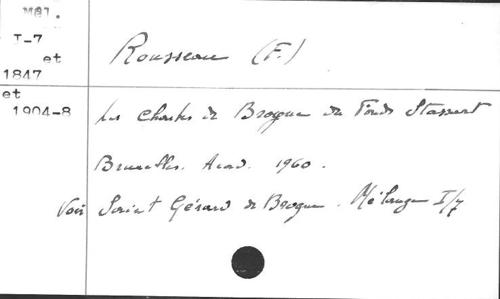 Mél.
I-7
et
1847
et
1904-8
Rousseau (F.)
Les Chartes de Brogne du Fonds Stassart
Bruxelles. Acad. 1960.
Voir Saint Gérard de Brogne. Mélanges I/7